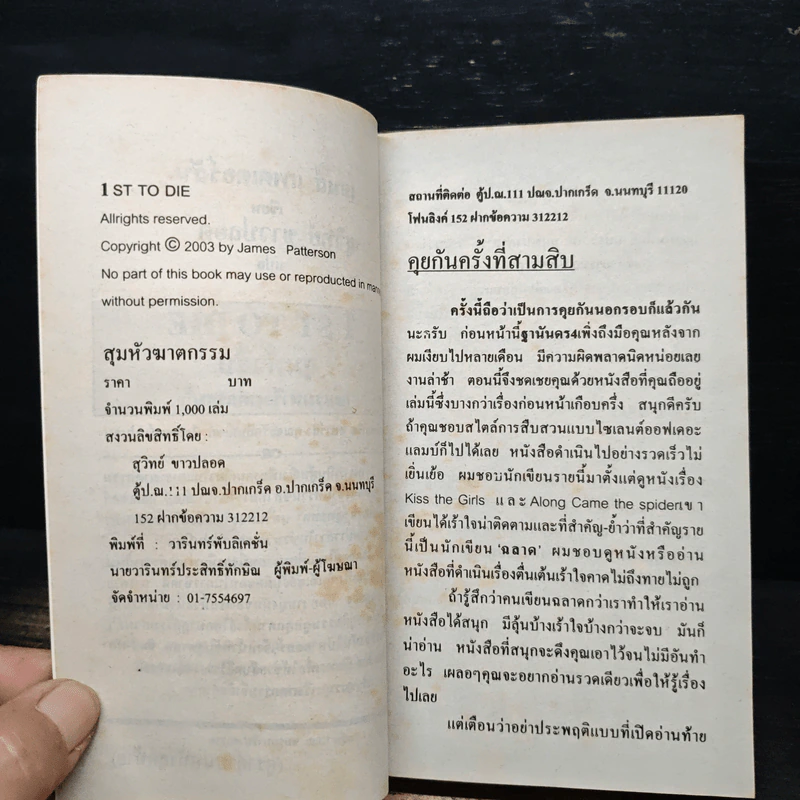 1 ST TO DIE
Allrights reserved.
Copyright © 2003 by James Patterson
No part of this book may use or reproducted in
without permission.
สุมหัวฆาตกรรม
ราคา บาท
จำนวนพิมพ์ 1,000 เล่ม
สงวนลิขสิทธิ์โดย :
สุวิทย์ ขาวปลอด
ตู้ป.ณ.111 ปณจ.ปากเกร็ด อ.ปากเกร็ด จ.นนทบุรี
152 ฝากข้อความ 312212
พิมพ์ที่ : วารินทร์พับลิเคชั่น
นายวารินทร์ประสิทธิ์ทักษิณ ผู้พิมพ์-ผู้โฆษณา
จัดจำหน่าย : 01-7554697
สถานที่ติดต่อ ตู้ป.ณ.111 ปณจ.ปากเกร็ด จ.นนทบุรี 11120
โฟนลิงค์ 152 ฝากข้อความ 312212
คุยกันครั้งที่สามสิบ
ครั้งนี้ถือว่าเป็นการคุยกันนอกรอบก็แล้วกัน
นะครับ ก่อนหน้านี้ฐานันดร4เพิ่งถึงมือคุณหลังจาก
ผมเงียบไปหลายเดือน มีความผิดพลาดนิดหน่อยเลย
งานล่าช้า ตอนนี้จึงชดเชยคุณด้วยหนังสือที่คุณถืออยู่
เล่มนี้ซึ่งบางกว่าเรื่องก่อนหน้าเกือบครึ่ง สนุกดีครับ
ถ้าคุณชอบสไตล์การสืบสวนแบบไซเลนต์ออฟเดอะ
แลมบ์ก็ไปได้เลย หนังสือดำเนินไปอย่างรวดเร็วไม่
เยิ่นเย้อ ผมชอบนักเขียนรายนี้มาตั้งแต่ดูหนังเรื่อง
Kiss the Girls และ Along Came the spiderเขา
เขียนได้เร้าใจน่าติดตามและที่สำคัญ-ย้ำว่าที่สำคัญราย
นี้เป็นนักเขียน 'ฉลาด' ผมชอบดูหนังหรืออ่าน
หนังสือที่ดำเนินเรื่องตื่นเต้นเร้าใจคาดไม่ถึงทายไม่ถูก
ถ้ารู้สึกว่าคนเขียนฉลาดกว่าเราทำให้เราอ่าน
หนังสือได้สนุก มีลุ้นบ้างเร้าใจบ้างกว่าจะจบ มันก็
น่าอ่าน หนังสือที่สนุกจะดึงคุณเอาไว้จนไม่มีอันทำ
อะไร เผลอๆคุณจะอยากอ่านรวดเดียวเพื่อให้รู้เรื่อง
ไปเลย
แต่เตือนว่าอย่าประพฤติแบบที่เปิดอ่านท้าย